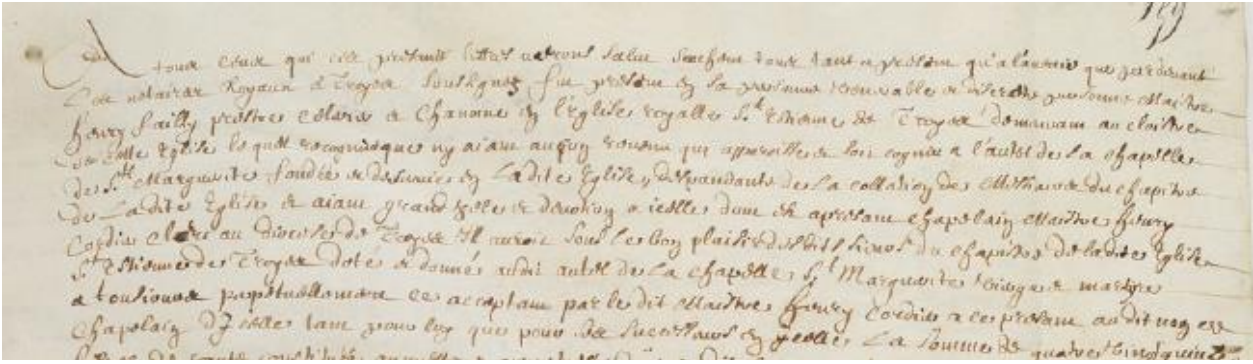 A tous ceux qui ces presentes lettres verront salut scavoir tant a presens qu'a l'advenir que pardevant
Les notaires Royaux a Troyes soubsignez fut present en sa personne venerable et discrette personne Maistre
Henry Failly prestre et chanoine en l'Eglise royalle St Estienne de Troyes demeurant au cloistre
de cette Eglise lequel recognut que ny aiant aucun revenu qui apparoisse et soit cognu a l'autel de la chapelle
de Ste Marguerite fondée et desservie en Ladite Eglise, despendante de La collation de Messieurs du chapitre
de Ladite Eglise et aiant grand zele et devotion a icelle dont est a present chapelain Maistre Henry
Cordier clerc au diocese de Troyes Il auroit sous le bon plaisir desdits sieurs du chapitre de ladite Eglise
St Estienne de Troyes doté et donné audit autel de La chapelle Ste Marguerite vierge et martyre
a tousiours perpetuellement ce acceptant par le dit Maistre Henry Cordier a ce present audit nom et
Chapelain d'Icelle tant pour luy que pour ses successeurs en icelle La somme de quatre vingt quinze
de rente constituée annuelle